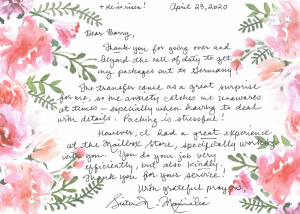 April 23, 2020
Dear Barry,
Thank you for going over and
beyond the call of duty to get
my packages out to Germany!
The transfer came as a great surprise
for me, so the anxiety catches me unawares
at times - especially when having to deal
with details. Packing is stressful!
However, I had a great experience
at the Mailbox Store, specifically working
with you. You do your job very
efficiently, but also kindly.
Thank you for your service!
With grateful prayers,
Sister